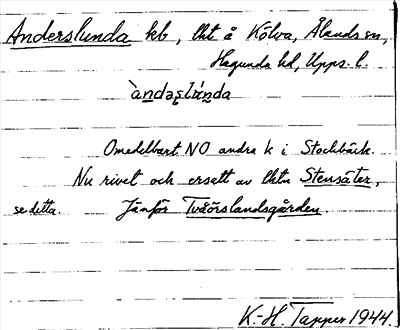 Anderslunda kb, lht å Kölva, Ålands sn,
Hagunda hd, Upps. l.
`andəʂlúnda
Omedelbart NO andra k i Stockbäck.
Nu rivet och ersatt av lhtn Stensäter,
se detta. Jämför Tvåörslandsgården.
K.-H. Tapper 1944.